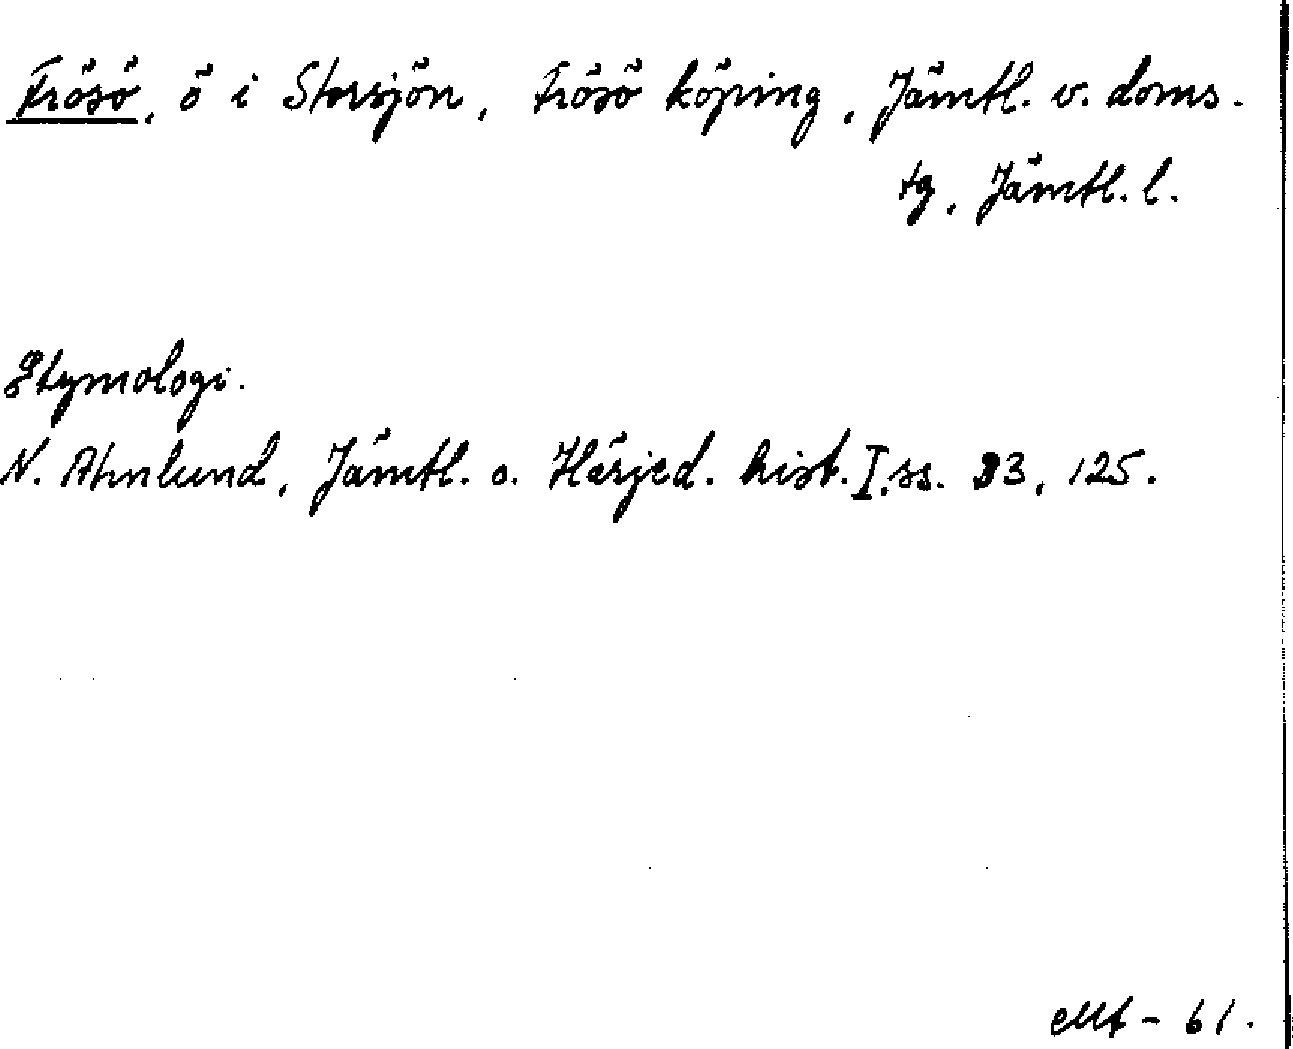 Frösö, ö i Storsjön, Frösö köping, Jämtl. v. doms.
tg, Jämtl. l.
Etymologi.
N. Ahnlund, Jämtl. o. Härjed. hist. I, ss. 93, 125.
- 61.